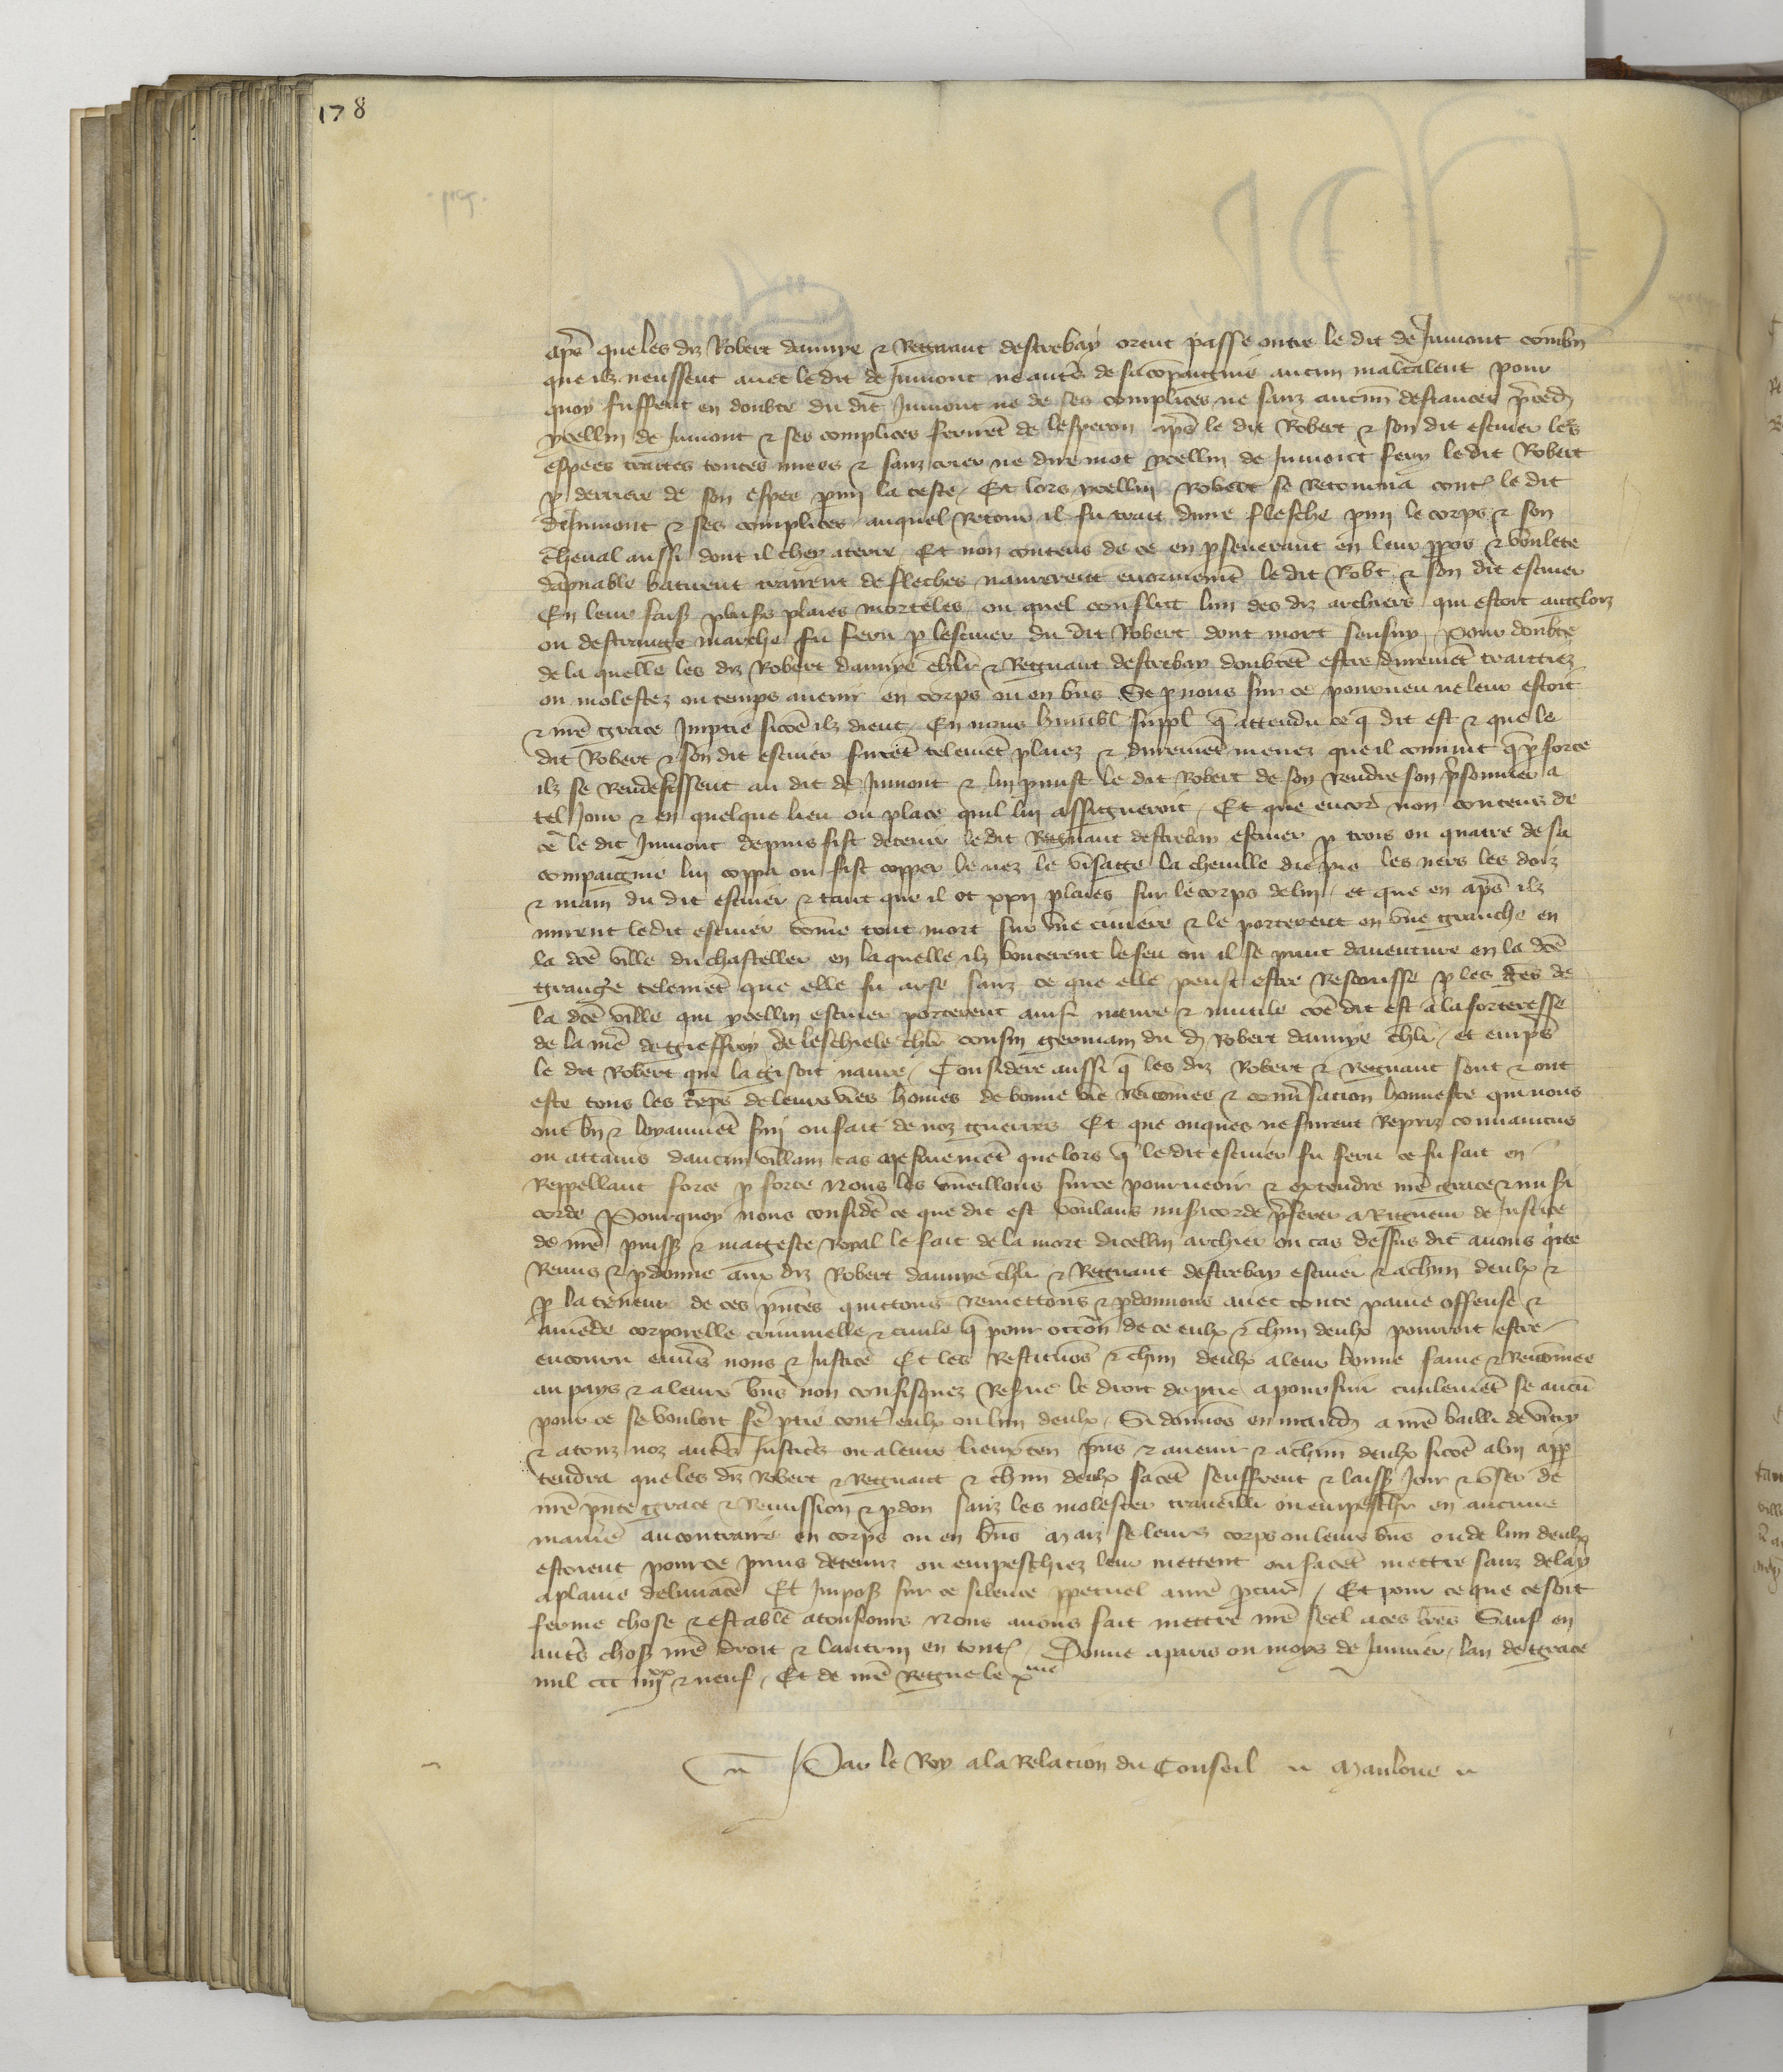 178
apres que les diz Robert damye & Regnaut destrebay orent passe oultre le dit de Jumont combn
que ilz neussent auec le dit de Jumont ne autres de sa compaignie aucun maltalent pour
quoy fussent en doubte du dit Jumont ne de ses complices ne sanz aucun deffiances preced
ycellui de Jumont & ses complices ferirent de lesperon apres le dit Robert & son dit escuier les
espees traites toutes nues & sanz crier ne dire mot ycellui de Jumont fery le dit Robert
p derriere de son espee pmi la teste / Et lors ycellui Robert se Retourna contre le dit
de Jumont & ses complices auquel Retour il fu trait dune flesche pmi le corps & son
cheual aussi dont il chey a terre / Et non contens de ce en pseuerant en leur ppos & voulete
dapnable batirent trairent de fleches naurerent enormement le dit Robt & son dit escuier
En leur fais plusrs plaies morteles ou quel conflict lun des diz archiers qui estoit anglois
ou destrange marche fu feru p lescuier du dit Robert dont mort sensuy / Pour doubte
de la quelle les diz Robert damye chlr & Regnaut destrebay doubtent estre durement traittiez
ou molestez ou temps auenir en corps ou en bns Se p nous sur ce pourueu ne leur estoit
& nre grace Impartie sicoe ilz dient / En nous humbl suppl q attendu ce q dit est & que le
dit Robert & son dit escuier furent telement plaiez & durement menez que il conuint q p force
ilz se Rendesissent au dit de Jumont & lui pmist le dit Robert de soy rendre son prisonnier a
tel Jour & en quelque lieu ou place quil lui assigneroit / Et que encor non contens de
ce le dit Jumont depuis fist detenir le dit Regnaut destrebay escuier p trois ou quatre de sa
compaignie lui coppa ou fist copper le nez le visaige la cheuille du pie les ners les doiz
& main du dit escuier & tant que il ot xxij plaies sur le corps de lui / et que en apres ilz
mirent le dit escuier come tout mort sur vne ciuiere & le porterent en vne granche en
la dce ville du chasteller en laquelle ilz bouterent le feu ou il se print dauenture en la dce
grange telement que elle fu arse sanz ce que elle peust estre Rescousse p les ges de
la dce ville qui ycellui escuier porterent ainsi naure & mutile coe dit est a la forteresse
de la me de gieffroy de leschiele chlr cousin germain du d Robert damye chlr / et empres
le dit Robert qui la gisoit naure / Considere aussi q les diz Robert & Regnaut sont & ont
este tous les teps de leurs vies homes de bonne vie renomee & conuersacion honneste qui nous
ont bn & loyaument serui ou fait de noz guerres Et que onques ne furent Repris conuaincus
ou attains daucun villain cas mesmement que lors q le dit escuier fu feru ce fu fait en
Reppellant force p force Nous les vueillons sur ce pourueoir & extendre nre grace & misi
corde Pourquoy nous consider ce que dit est voulans misicorde preferer a Rigueur de Justice
de nre puiss & mageste Royal le fait de la mort dicellui archier ou cas dessus dit auons qitte
Remis & pdonne aux diz Robert damye chlr & Regnaut destrebay escuier & a chun deulx &
p la teneur de ces pntes quittons remettons & pdonnons auec toute paine offense &
amende corporelle criminelle & ciuile q pour occon de ce eulx & chun deulx pourroit estre
encouru enuers nous & Justice Et les Restituos & chun deulx a leur bonne fame & Renomee
au pays & a leurs bns non confisquez Resrue le droit de ptie a poursuir ciuilement se aucu
pour ce se vouloit fe ptie contre eulx ou lun deulx / Si donnos en mand a nre bailli de vitry
& a touz noz autres Justices ou a leurs lieuxten pns & auenir & a chun deulx sicoe a lui app
tendra que les diz Robert & Regnaut & chun deulx facent seuffrent & laiss Joir & vser de
nre pnte grace & Remission & pdon sanz les molester trauaillr ou empeschr en aucune
maniere au contraire en corps ou en bns Maiz se leurs corps ou leurs bns ou de lun deulx
estoient pour ce prins detenuz ou empeschiez leur mettent ou facet mettre sanz delay
a plaine deliurance Et Imposs sur ce silence ppetuel a nre pcur / Et pour ce que ce soit
ferme chose & estable a tousiours Nous auons fait mettre nre seel a ces lres Sauf en
autres chos nre droit & lautrui en toutes / Donne a paris ou moys de Januier / lan de grace
mil ccc iiijxx & neuf / Et de nre Regne le xme
Par le Roy a la Relacion du Conseil Manloue